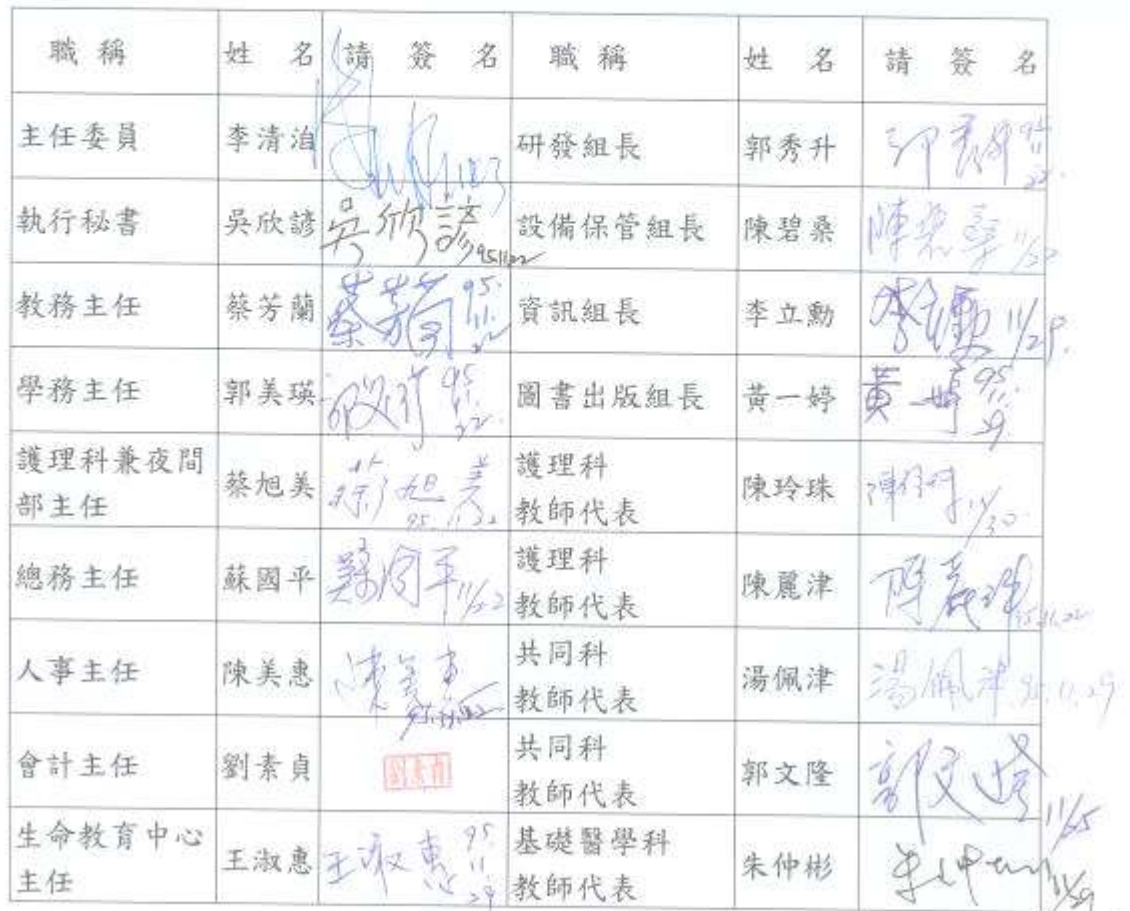 職稱 姓名 請簽名 職稱 姓名 請簽名
主任委員 李清泊 研發組長 郭秀升 95 11 22.
執行秘書 吳欣諺 吳欣諺 95.11.22 設備保管組長 陳碧桑 陳碧桑
教務主任 蔡芳蘭 蔡芳蘭 95. 11. 22 資訊組長 李立勳 11/29.
學務主任 郭美瑛 95. 11. 22. 圖書出版組長 黃一婷 黃一婷 95. 11. 29.
護理科兼夜間
部主任 蔡旭美 蔡旭美 95.11.22 護理科
教師代表 陳玲珠 11/30
總務主任 蘇國平 蘇國平 11/22 護理科
教師代表 陳麗津 陳麗津 95.11.22
人事主任 陳美惠 陳美惠 共同科
教師代表 湯佩津 湯佩津 95.11.29
會計主任 劉素貞 劉素貞 共同科
教師代表 郭文隆 郭文隆
生命教育中心
主任 王淑惠 王淑惠 95 11 29 基礎醫學科
教師代表 朱仲彬 11/29